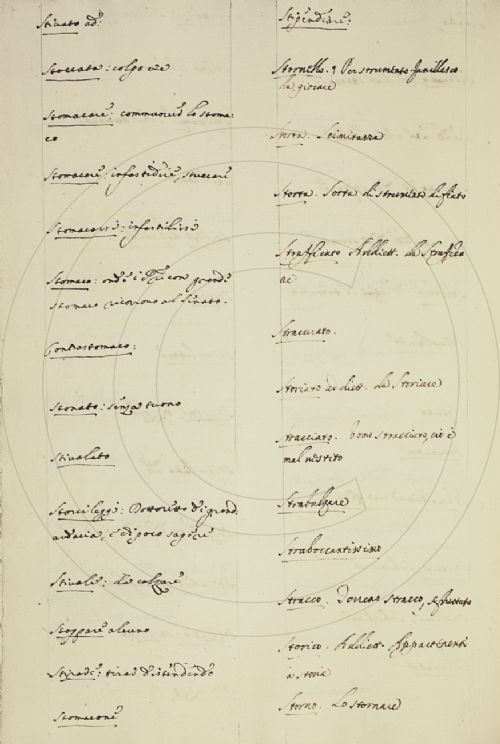 Stivato ad:
Stoccata: colpo &c
Stomacare: commuovere lo stoma-
co
Stomacare: infastidire, stuccare
Stomacarsi: infastidirsi
Stomaco: onde è che con grande
stomaco al Senato.
Contrastomaco:
Stonato: senza tuono
Stivalato
Storcileggi: Dottoretto di grand
audacia, e di poco sapere
Stivale: da calzare
Stoppare alcuno
Stirare: tirar distendendo
Stomacone
Stipendiare:
Stornello. Per strumento fanillesco
da giocare
Storta. Scimitarra
Storta. Sorta di strumento di fiato
Strafficato Addiett. da Straffica
re
Straccurato.
Storiato Addiett. da Storiare
Stracciato. Uomo stracciato, cioè
mal vestito
Strabulzare
Straboccantissimo
Stracco. Terreno stracco, e sfruttato
Storico. Addiett. Appartenente
a storia
Storno. Lo stornare